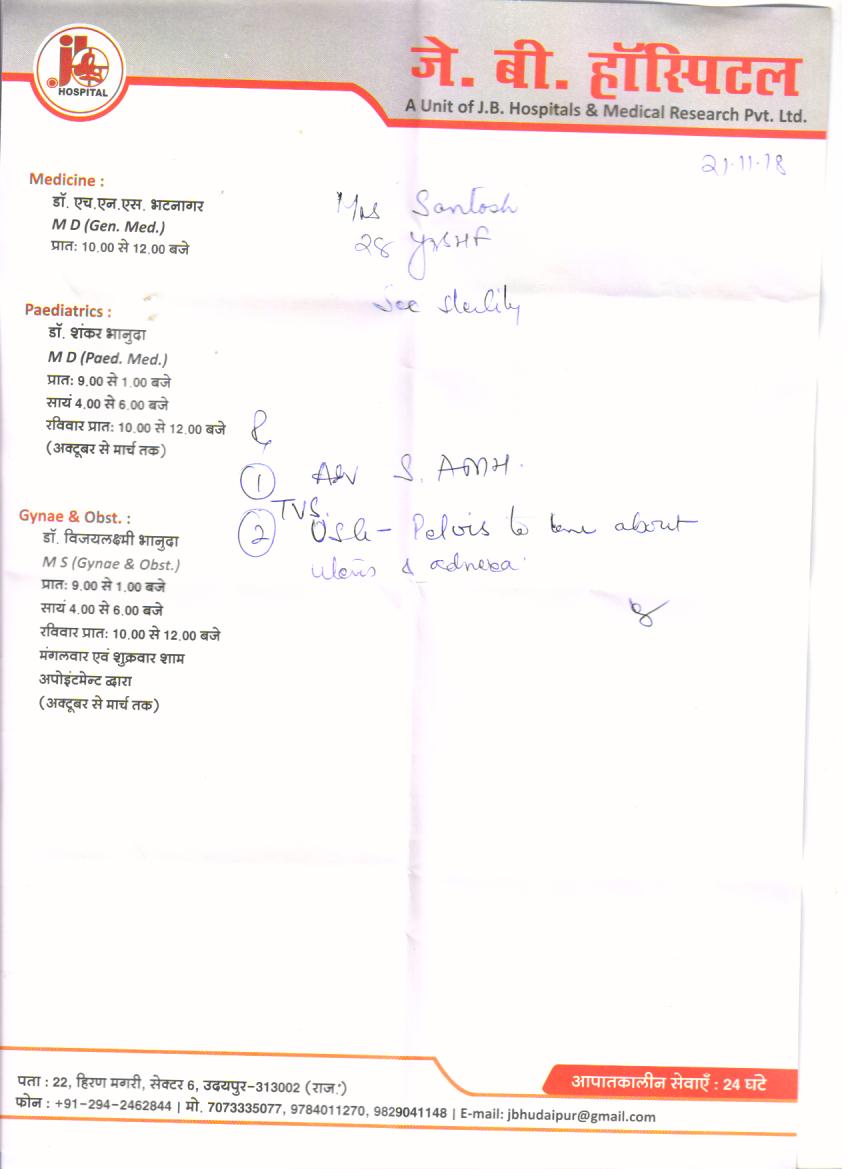 jb
HOSPITAL
जे. बी. हॉस्पिटल
A Unit of J.B. Hospitals & Medical Research Pvt. Ltd.
21.11.18
Medicine :
डॉ. एच.एन.एस. भटनागर
M D (Gen. Med.)
प्रात: 10.00 से 12.00 बजे
Mrs Santosh
28 yrs HF
Sec sterility
Paediatrics :
डॉ. शंकर भानुदा
M D (Paed. Med.)
प्रात: 9.00 से 1.00 बजे
सायं 4.00 से 6.00 बजे
रविवार प्रात: 10.00 से 12.00 बजे
(अक्टूबर से मार्च तक)
Rx
1 Adv S. AMH.
TVS.
2 USG - Pelvis to know about
uterus & adnexa.
Gynae & Obst. :
डॉ. विजयलक्ष्मी भानुदा
M S (Gynae & Obst.)
प्रात: 9.00 से 1.00 बजे
सायं 4.00 से 6.00 बजे
रविवार प्रात: 10.00 से 12.00 बजे
मंगलवार एवं शुक्रवार शाम
अपोइंटमेन्ट द्वारा
(अक्टूबर से मार्च तक)
पता : 22, हिरण मगरी, सेक्टर 6, उदयपुर-313002 (राज.)
फोन : +91-294-2462844 | मो. 7073335077, 9784011270, 9829041148 | E-mail: jbhudaipur@gmail.com
आपातकालीन सेवाएँ : 24 घंटे